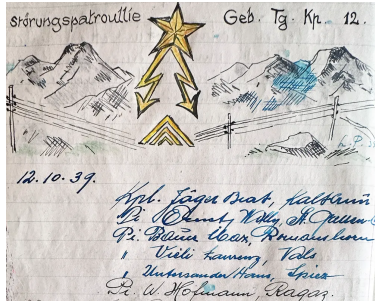 Störungspatroullie Geb. Tg. Kp. 12.
L.P.
12.10.39.
Kpl. Jäger Beat, Kaltbrunn
Pi. Willy, St. Gallen
Pi. Baur Max, Romanshorn
" Vieli Laurenz, Vals
" Untersander Hans, Spiez
Pi. W. Hofmann, Ragaz.